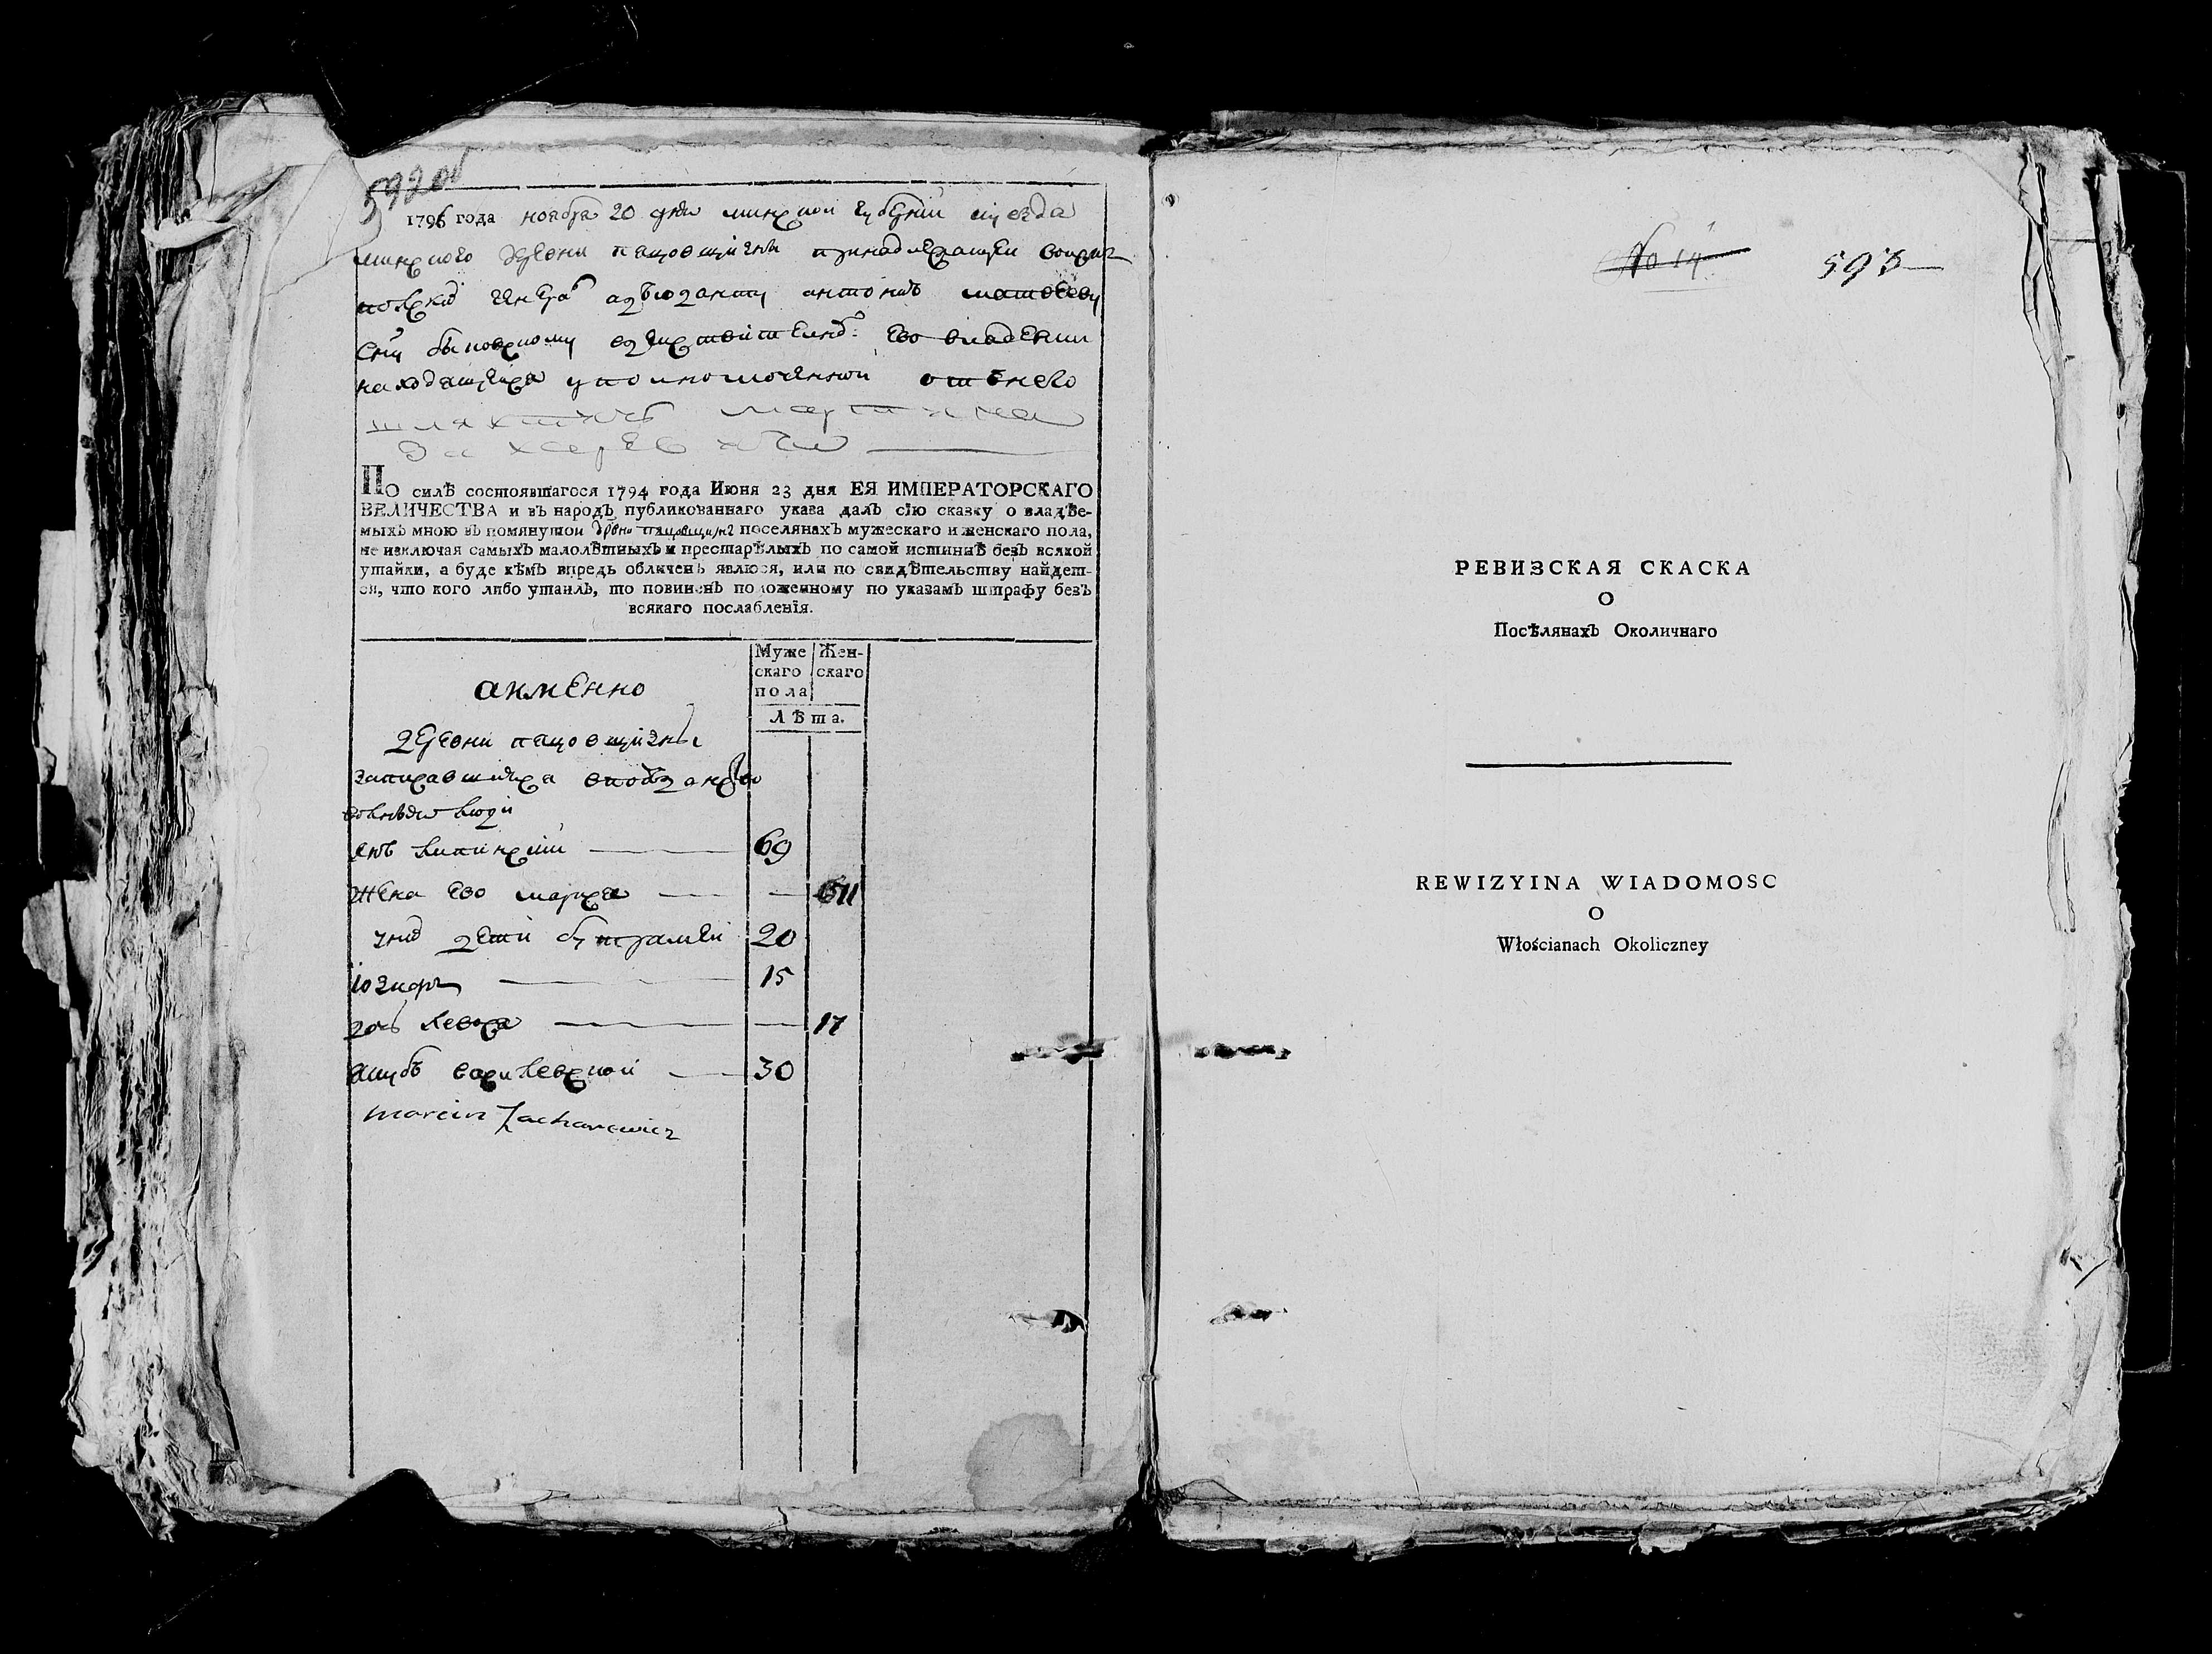 592 об
1796 года ноября 20 дня минской губернии и уезда
минского деревни пацовщизны принадлежащеи
генера адьютанту антонию
его владении
находящеися уполномоченной отънего
шляхтичъ мартинъ
Захаревичъ
По силѣ состоявшагося 1794 года Июня 23 дня ЕЯ ИМПЕРАТОРСКАГО
ВЕЛИЧЕСТВА и въ народъ публикованнаго указа далъ сїю сказку о владѣе-
мыхъ мною въ помянутой дрвно пацовщизнѣ поселянахъ мужескаго и женскаго пола,
не изключая самыхъ малолѣтныхъ и престарѣлыхъ по самой истиннѣ безъ всякой
утайки, а буде кѣмъ впредь обличенъ явлюся, или по свидѣтельству найдет-
ся, что кого либо утаилъ, то повиненъ положенному по указамъ штрафу безъ
всякаго послабленїя.
Муже Жен-
скаго скаго
пола
Лѣта.
аименно
деревни пацовщизны
записавшихся
волныя люди
янъ липинскии 69
жена ево марися
унихъ дети бутрамеи 20
юзифъ 15
дочь 17
якубъ василевскои 30
Marcin Zacharewicz
No 14 593
РЕВИЗСКАЯ СКАСКА
О
Посѣлянахъ Околичнаго
REWIZYINA WIADOMOSC
O
Włościanach Okoliczney